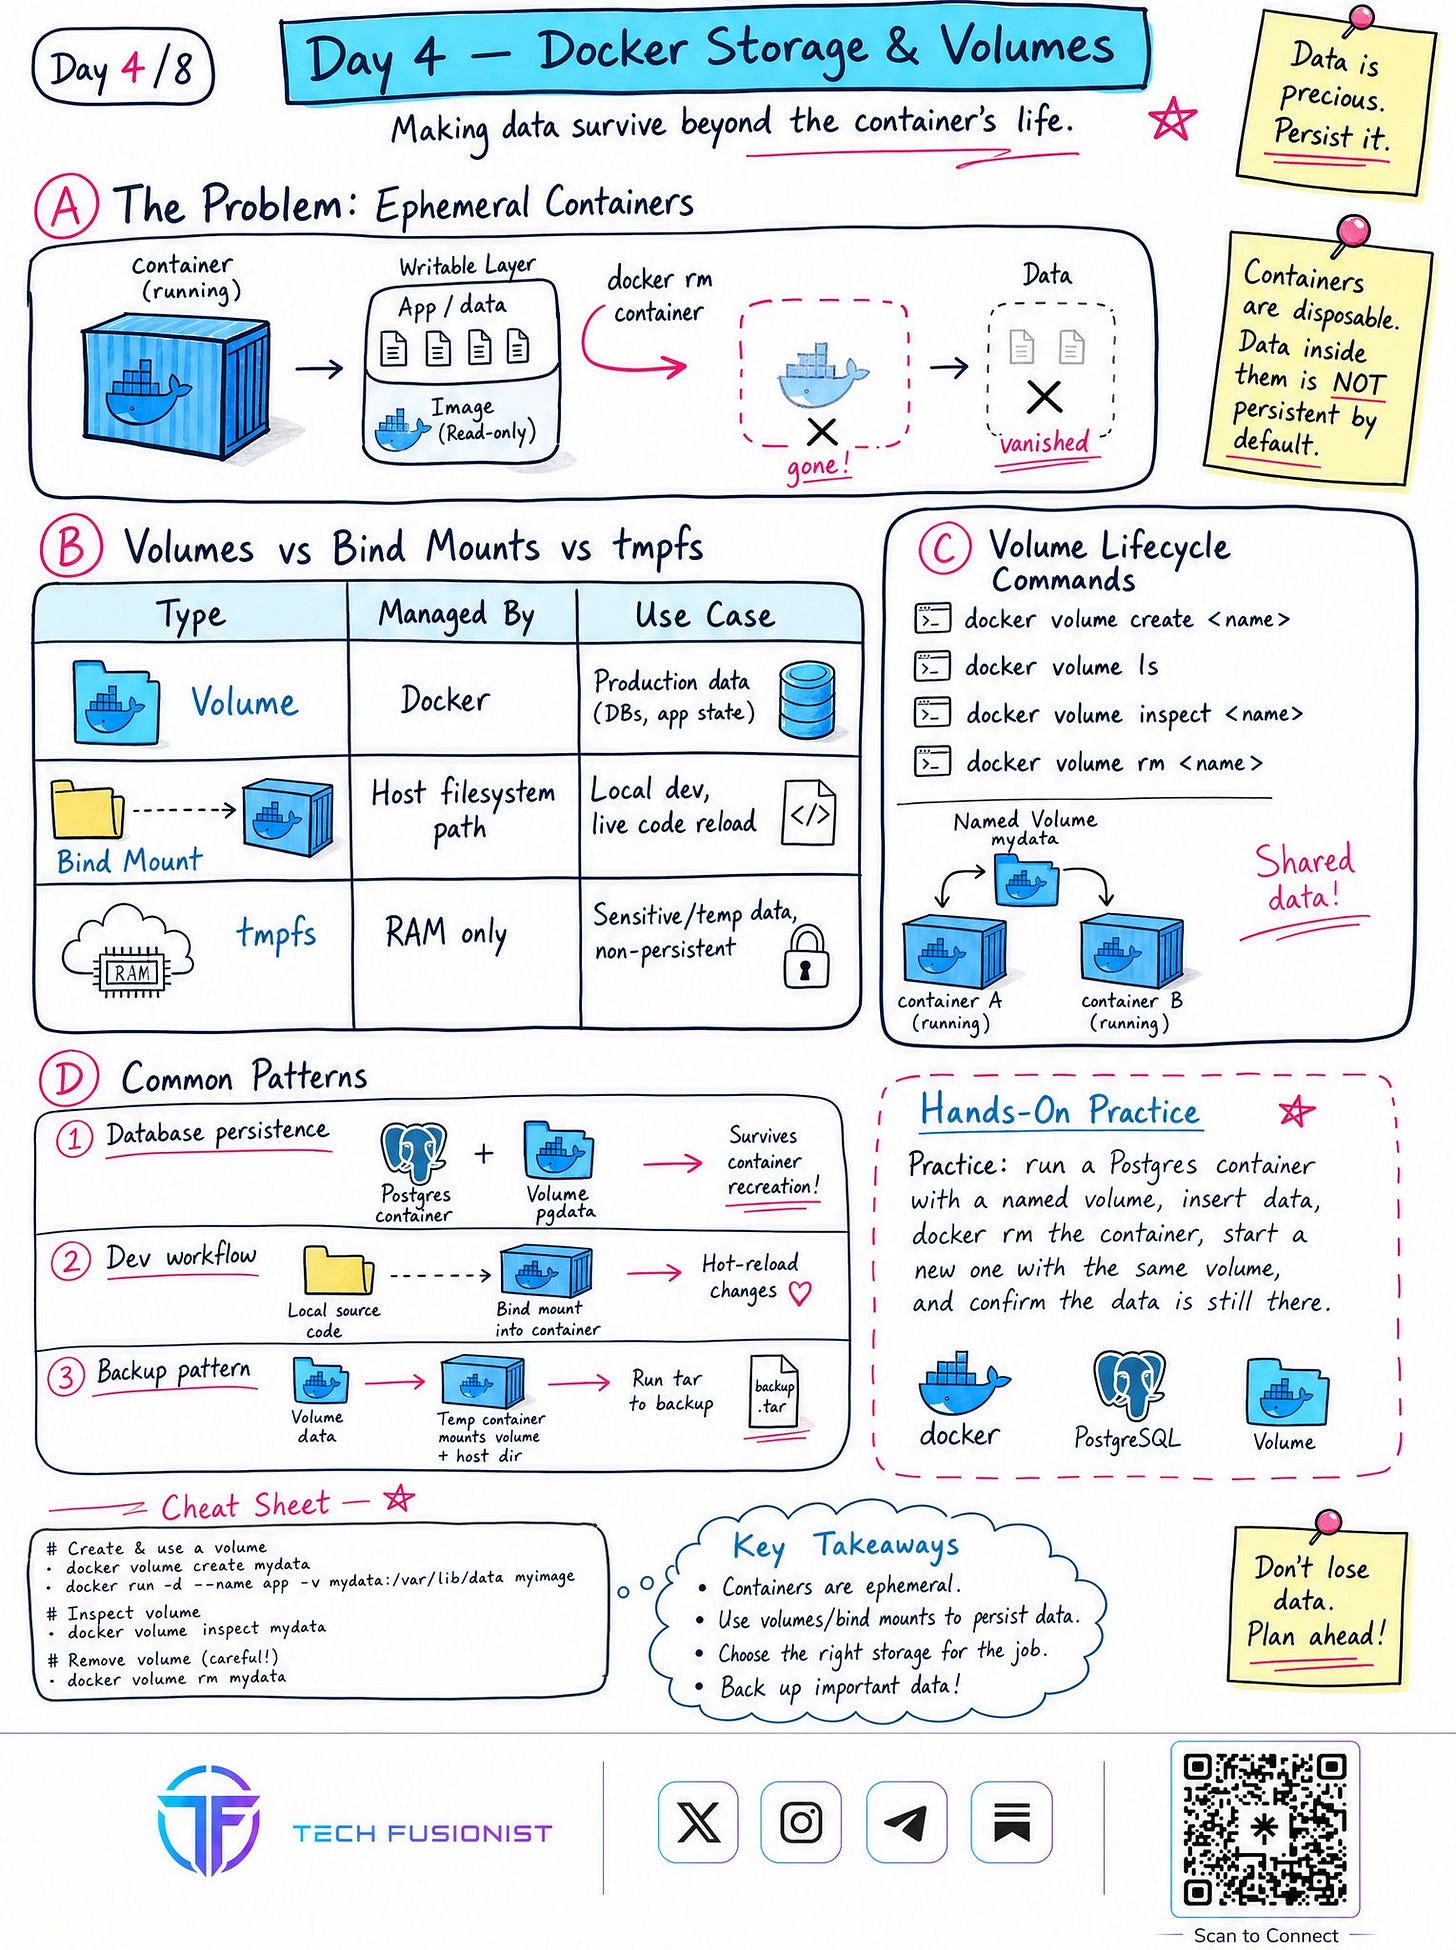 Day 4/8
Day 4 — Docker Storage & Volumes
Making data survive beyond the container's life.
Data is
precious.
Persist it.
A The Problem: Ephemeral Containers
Container
(running)
Writable Layer
App / data
Image
(Read-only)
docker rm
container
gone!
Data
vanished
Containers
are disposable.
Data inside
them is NOT
persistent by
default.
B Volumes vs Bind Mounts vs tmpfs
Type Managed By Use Case
Volume
Docker
Production data
(DBs, app state)
Bind Mount
Host filesystem
path
Local dev,
live code reload
</>
RAM
tmpfs
RAM only
Sensitive/temp data,
non-persistent
C Volume Lifecycle
Commands
>_ docker volume create <name>
>_ docker volume ls
>_ docker volume inspect <name>
>_ docker volume rm <name>
Named Volume
mydata
Shared
data!
container A
(running)
container B
(running)
D Common Patterns
1 Database persistence
Postgres
container
+
Volume
pgdata
Survives
container
recreation!
2 Dev workflow
Local source
code
Bind mount
into container
Hot-reload
changes ♡
3 Backup pattern
Volume
data
Temp container
mounts volume
+ host dir
Run tar
to backup
backup
.tar
Hands-On Practice
Practice: run a Postgres container
with a named volume, insert data,
docker rm the container, start a
new one with the same volume,
and confirm the data is still there.
docker
PostgreSQL
Volume
Cheat Sheet
# Create & use a volume
· docker volume create mydata
· docker run -d --name app -v mydata:/var/lib/data myimage
# Inspect volume
· docker volume inspect mydata
# Remove volume (careful!)
· docker volume rm mydata
Key Takeaways
• Containers are ephemeral.
• Use volumes/bind mounts to persist data.
• Choose the right storage for the job.
• Back up important data!
Don't lose
data.
Plan ahead!
TF
TECH FUSIONIST
Scan to Connect